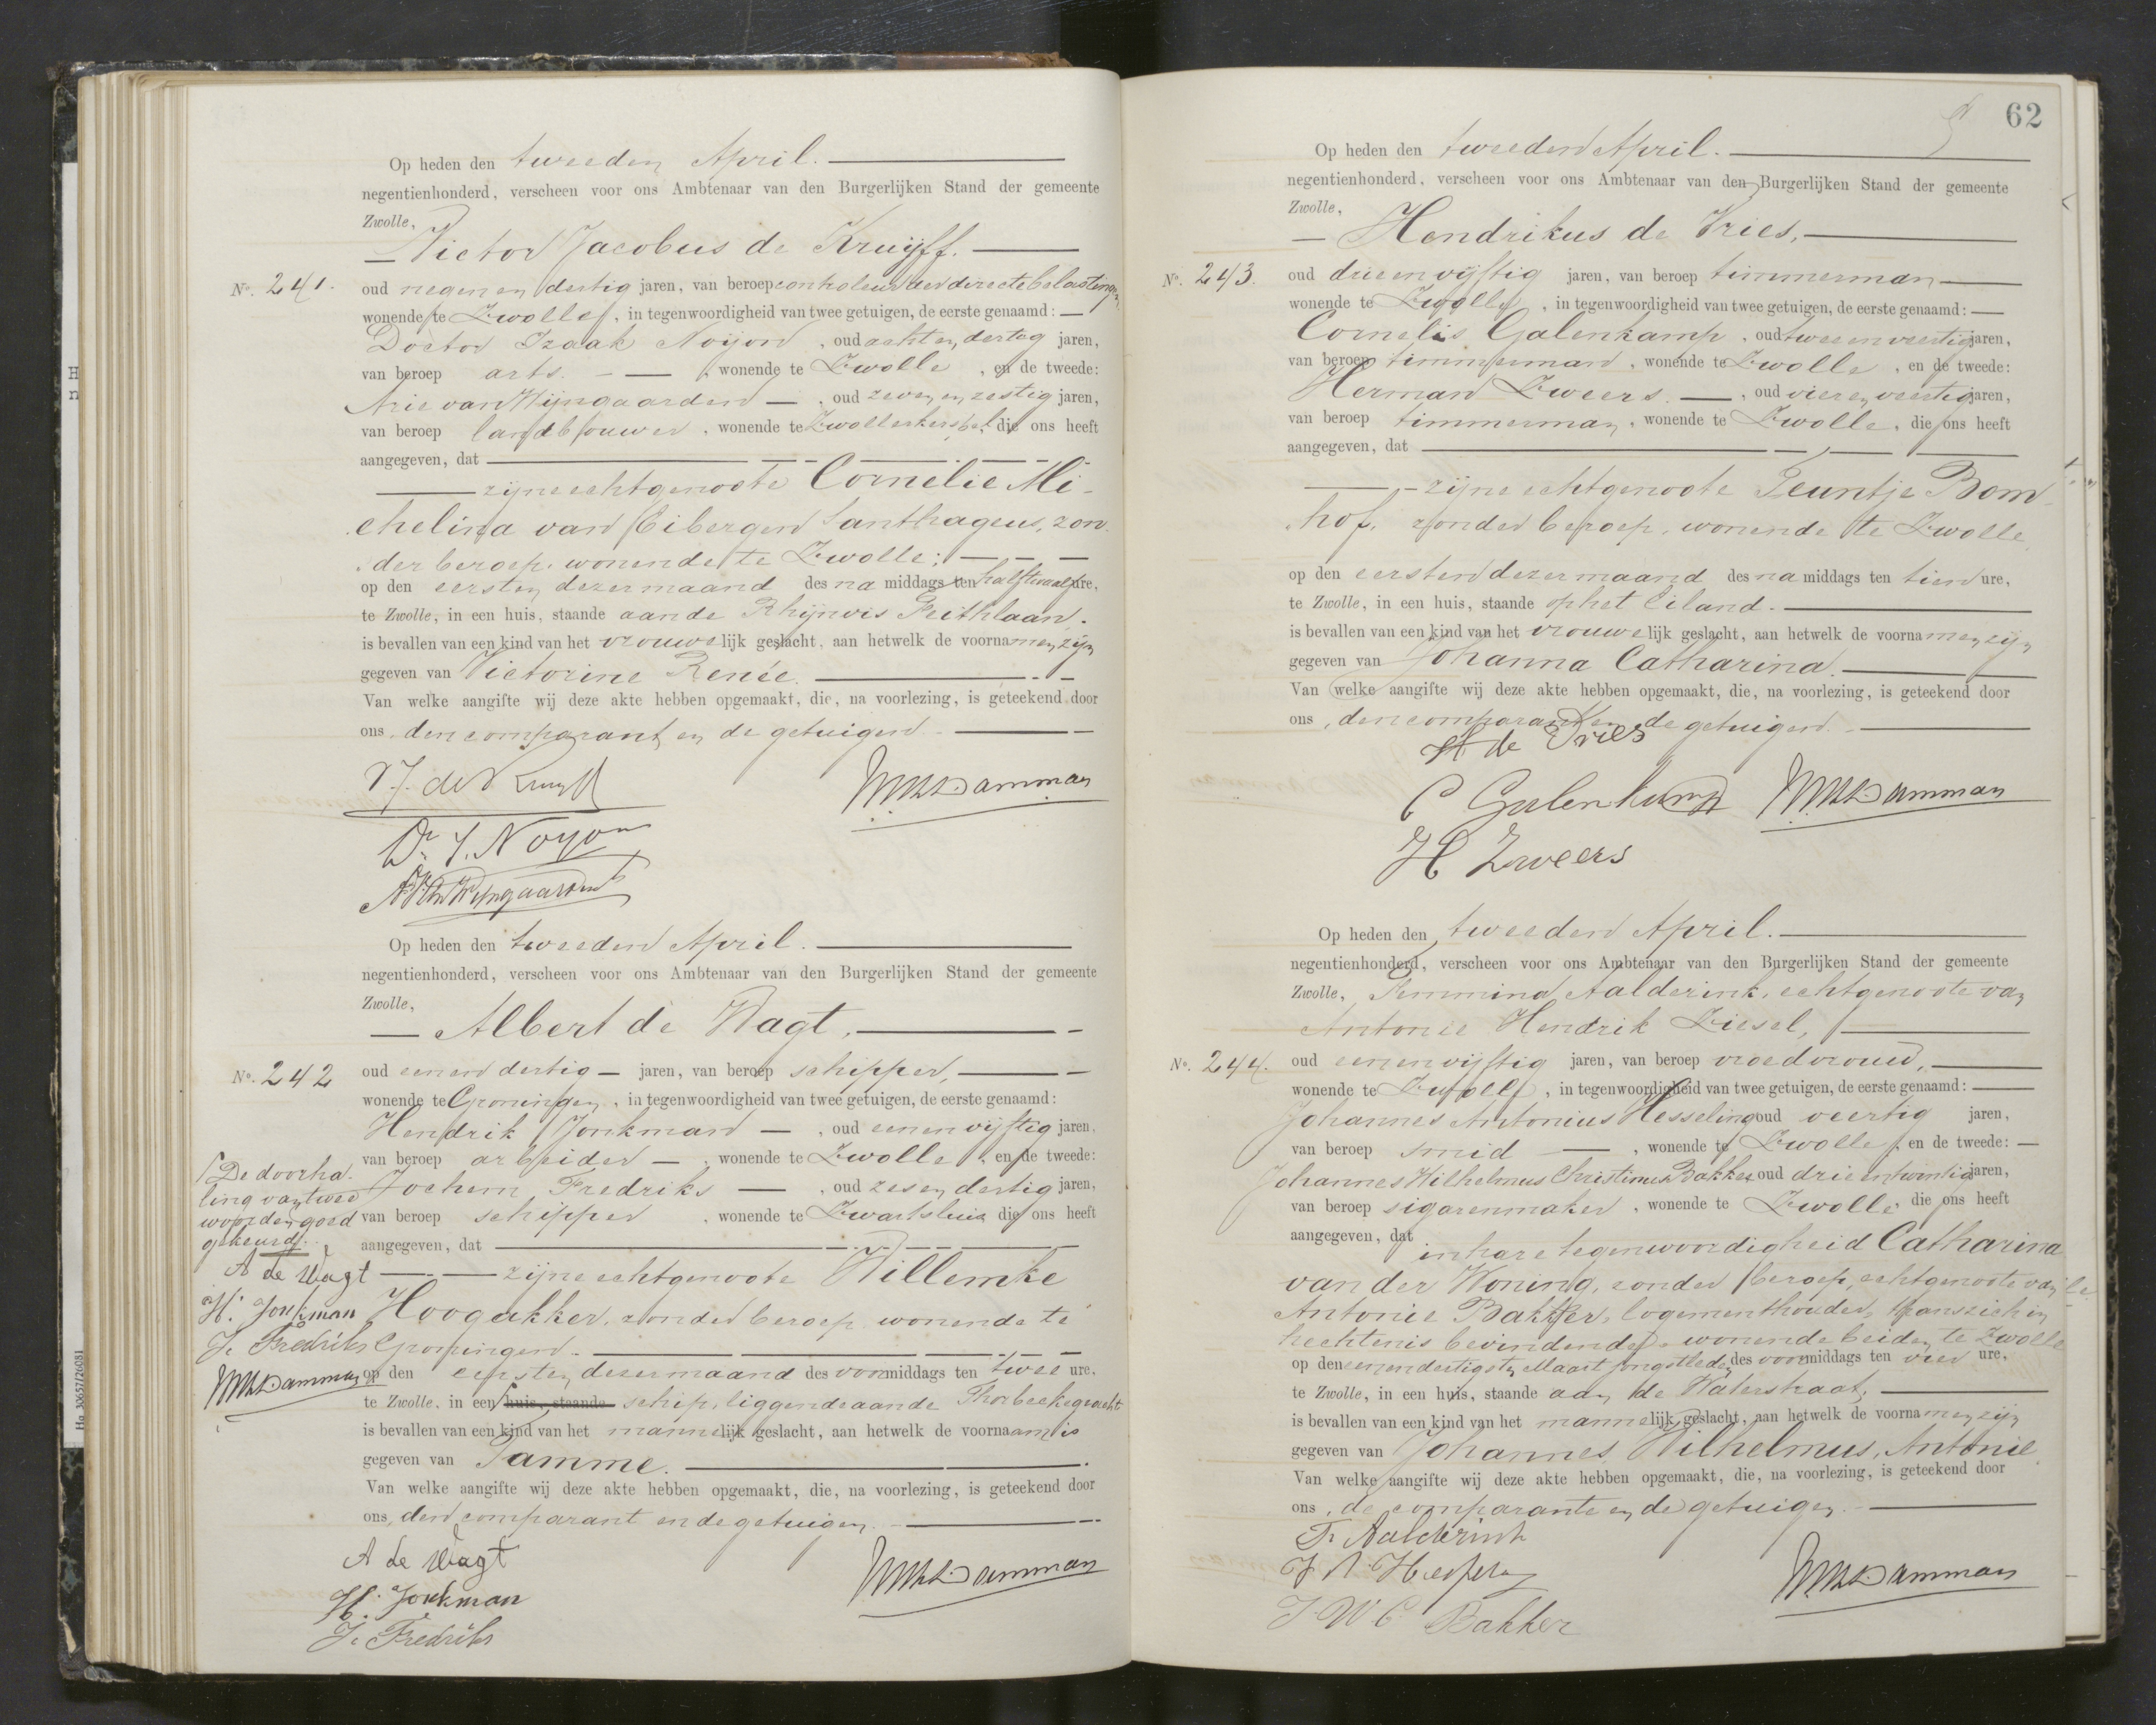 Op heden den tweeden April.
negentienhonderd, verscheen voor ons Ambtenaar van den Burgerlijken Stand der gemeente
Zwolle,
Victor Jacobus de Kruijff.
No. 241.
oud negen en dertig jaren, van beroep controleur der directe belastingen,
wonende te Zwolle, in tegenwoordigheid van twee getuigen, de eerste genaamd:
Doctor Izaak Noijon, oud acht en dertig jaren,
van beroep arts. wonende te Zwolle, en de tweede:
Arie van Wijngaarden, oud zeven en zestig jaren,
van beroep landbouwer, wonende te Zwollerkerspel, die ons heeft
aangegeven, dat
zijne echtgenoote Cornelie Mi-
chelina van Eibergen Santhagens, zon-
der beroep, wonende te Zwolle;
op den eersten dezer maand des na middags ten half twaalf ure,
te Zwolle, in een huis, staande aan de Rhijnvis Feithlaan.
is bevallen van een kind van het vrouwelijk geslacht, aan hetwelk de voornamen zijn
gegeven van Victorine Renée.
Van welke aangifte wij deze akte hebben opgemaakt, die, na voorlezing, is geteekend door
ons, den comparant en de getuigen.
VJ. de Kruijff
Damman
Dr. I. Noyon
A. van Wijngaarden
Op heden den tweeden April.
negentienhonderd, verscheen voor ons Ambtenaar van den Burgerlijken Stand der gemeente
Zwolle,
Albert de Wagt,
No. 242
oud een en dertig jaren, van beroep schipper,
wonende te Groningen, in tegenwoordigheid van twee getuigen, de eerste genaamd:
Hendrik Jonkman, oud een en vijftig jaren,
van beroep arbeider, wonende te Zwolle, en de tweede:
Jochem Fredriks, oud zes en dertig jaren,
van beroep schipper, wonende te Zwartsluis die ons heeft
aangegeven, dat
zijne echtgenoote Willemke
Hoogakker, zonder beroep wonende te
Groningen.
op den eersten dezer maand des voormiddags ten twee ure,
te Zwolle, in een huis, staande schip, liggende aan de Thorbeckegracht
is bevallen van een kind van het mannelijk geslacht, aan hetwelk de voornaam is
gegeven van Tamme.
Van welke aangifte wij deze akte hebben opgemaakt, die, na voorlezing, is geteekend door
ons, den comparant en de getuigen.
A de Wagt
Damman
H. Jonkman
J. Fredriks
De doorha-
ling van twee
woorden goed
gekeurd.
A de Wagt
H. Jonkman
J. Fredriks
Damman
62
Op heden den tweeden April.
negentienhonderd, verscheen voor ons Ambtenaar van den Burgerlijken Stand der gemeente
Zwolle,
Hendrikus de Vries,
No. 243.
oud drie en vijftig jaren, van beroep timmerman
wonende te Zwolle, in tegenwoordigheid van twee getuigen, de eerste genaamd:
Cornelis Galenkamp, oud twee en veertig jaren,
van beroep timmerman, wonende te Zwolle, en de tweede:
Herman Zweers, oud vier en veertig jaren,
van beroep timmerman, wonende te Zwolle, die ons heeft
aangegeven, dat
zijne echtgenoote Teuntje Bom-
hof, zonder beroep, wonende te Zwolle
op den eersten dezer maand des na middags ten tien ure,
te Zwolle, in een huis, staande op het Eiland.
is bevallen van een kind van het vrouwelijk geslacht, aan hetwelk de voornamen zijn
gegeven van Johanna Catharina.
Van welke aangifte wij deze akte hebben opgemaakt, die, na voorlezing, is geteekend door
ons, den comparant en de getuigen.
H de Vries
C Galenkamp
Damman
H Zweers
Op heden den tweeden April.
negentienhonderd, verscheen voor ons Ambtenaar van den Burgerlijken Stand der gemeente
Zwolle, Femmina Aalderink, echtgenoote van
Antonie Hendrik Ziesel,
No. 244.
oud een en vijftig jaren, van beroep vroedvrouw,
wonende te Zwolle, in tegenwoordigheid van twee getuigen, de eerste genaamd:
Johannes Antonius Hesseling oud veertig jaren,
van beroep smid, wonende te Zwolle, en de tweede:
Johannes Wilhelmus Christinus Bakker oud drie en twintig jaren,
van beroep sigarenmaker, wonende te Zwolle die ons heeft
aangegeven, dat
in hare tegenwoordigheid Catharina
van der Woning, zonder beroep, echtgenoote van
Antonie Bakker, logementhouder, thans zich in
hechtenis bevindende, wonende beiden te Zwolle
op den een en dertigsten Maart jongstleden des voormiddags ten vier ure,
te Zwolle, in een huis, staande aan de Waterstraat,
is bevallen van een kind van het mannelijk geslacht, aan hetwelk de voornamen zijn
gegeven van Johannes, Wilhelmus, Antonie
Van welke aangifte wij deze akte hebben opgemaakt, die, na voorlezing, is geteekend door
ons, de comparante en de getuigen.
F. Aalderink
J A Hesseling
Damman
J W C Bakker
Ha 30657/26081